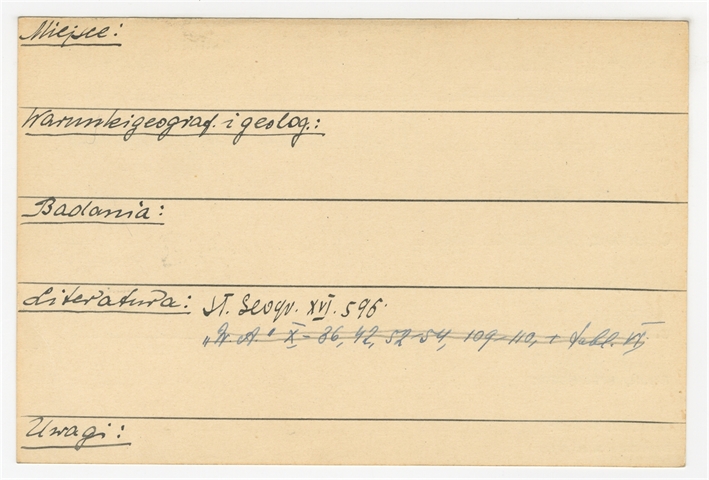 Miejsce:
Warunki geograf. i geolog.:
Badania:
Literatura: Sł. Geogr. XVI. 596.
„W. A." X - 36, 42, 52-54, 109-110, + tabl. VI;
Uwagi: